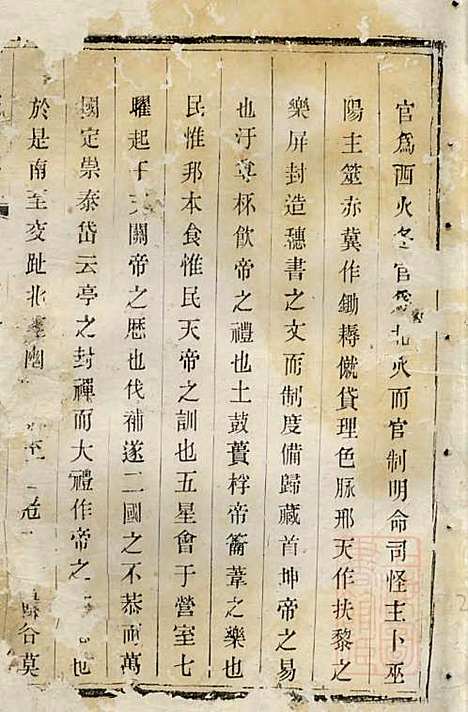 官為西火冬官為北火而官制明命司怪主卜巫
陽主筮赤冀作鋤耨僦貸理色脉邢天作扶黎之
樂屏封造穗書之文而制度備歸藏首坤帝之易
也汙尊杯飲帝之禮也土鼓蕢桴帝籥葦之樂也
民惟邦本食惟民天帝之訓也五星會于營室七
曜起于天關帝之厯也伐補遂二國之不恭而萬
國定崇泰岱云亭之封禪而大禮作帝之也
於是南至交趾北至幽谷莫